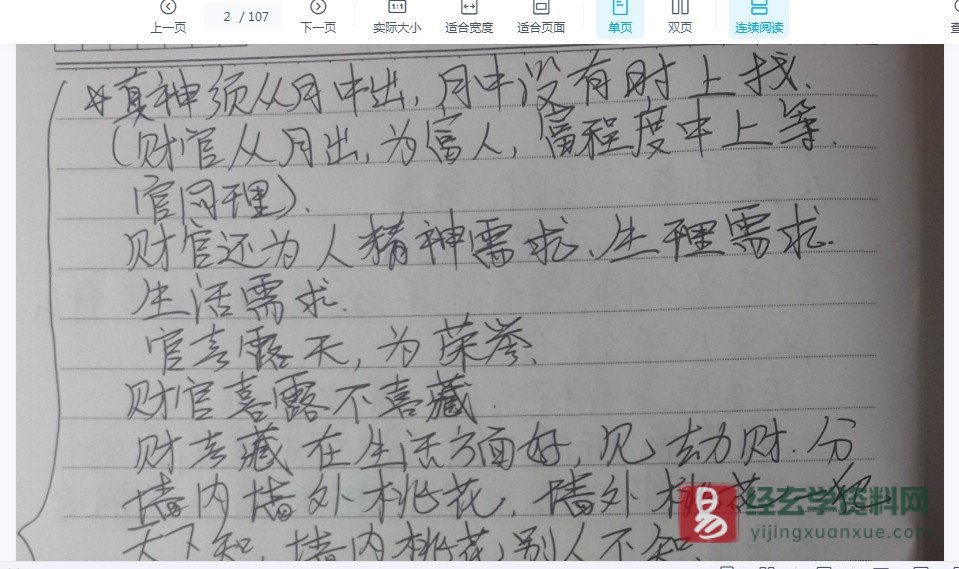 上一页
2 / 107
下一页
1:1
实际大小
适合宽度
适合页面
单页
双页
连续阅读
☆真神须从月中出,月中没有时上找.
(财官从月出,为富人,富程度中上等.
官同理).
财官还为人精神需求、生理需求.
生活需求.
官喜露天,为荣誉.
财官喜露不喜藏.
财喜藏在生活方面好,见劫财.分
墙内墙外桃花,墙外桃花一犯.
天下知,墙内桃花,别人不知.
易
经玄学资料网
yijingxuanxue.com